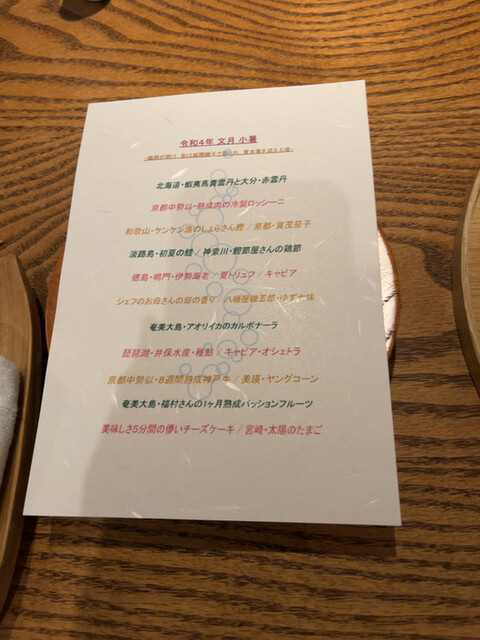 令和4年 文月 小暑
北海道・蝦夷馬糞雲丹と大分・赤雲丹
京都中勢以・熟成肉の冷製ロッシーニ
和歌山・ケンケン漁のしょらさん鰹 / 京都・賀茂茄子
淡路島・初夏の鱧 / 神奈川・鰹節屋さんの鶏節
徳島・鳴門・伊勢海老 / 夏トリュフ / キャビア
シェフのお母さんの畑の香り / 八幡屋礒五郎・ゆず七味
奄美大島・アオリイカのカルボナーラ
琵琶湖・井保水産・稚鮎 / キャビア・オシェトラ
京都中勢以・8週間熟成神戸牛 / 美瑛・ヤングコーン
奄美大島・福村さんの1ヶ月熟成パッションフルーツ
美味しさ5分間の儚いチーズケーキ / 宮崎・太陽のたまご